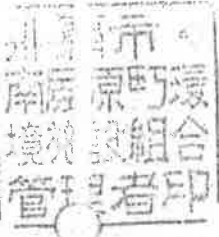 那覇市・
南風原町環
境施設組合
管理者印